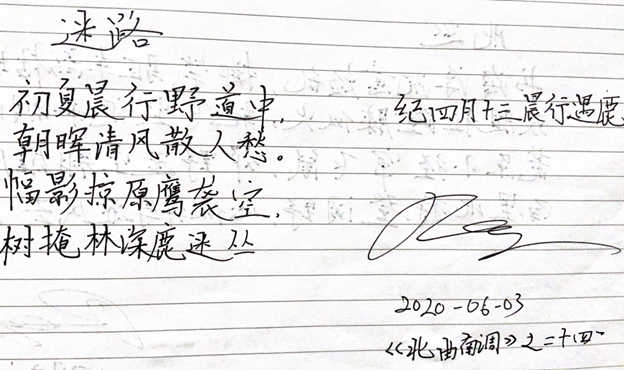 迷路
初夏晨行野道中,
朝晖清风散人愁。
幅影掠原鹰袭空,
树掩林深鹿迷丛
纪四月十三晨行遇鹿
2020-06-03
《北曲南调》之二十四